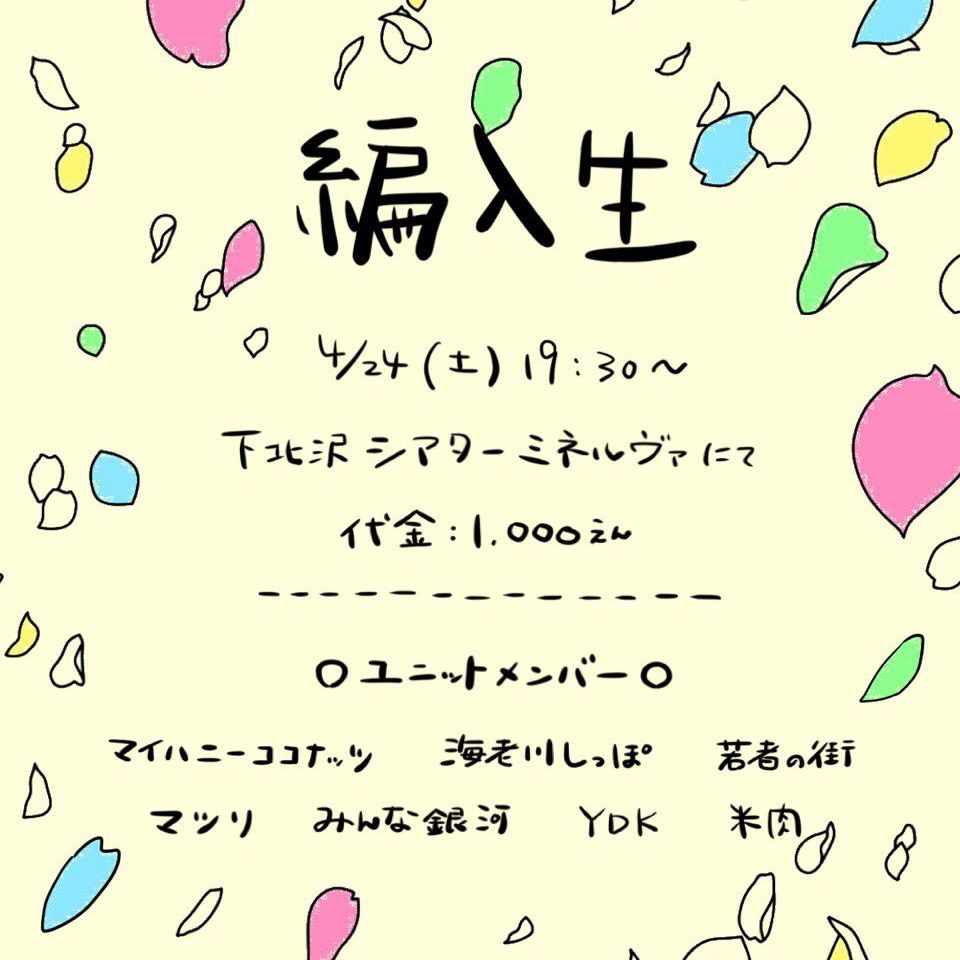 編入生
4/24(土) 19:30〜
下北沢 シアターミネルヴァにて
代金:1.000えん
--------------
○ユニットメンバー○
マイハニーココナッツ 海老川しっぽ 若者の街
マツリ みんな銀河 YDK 米肉